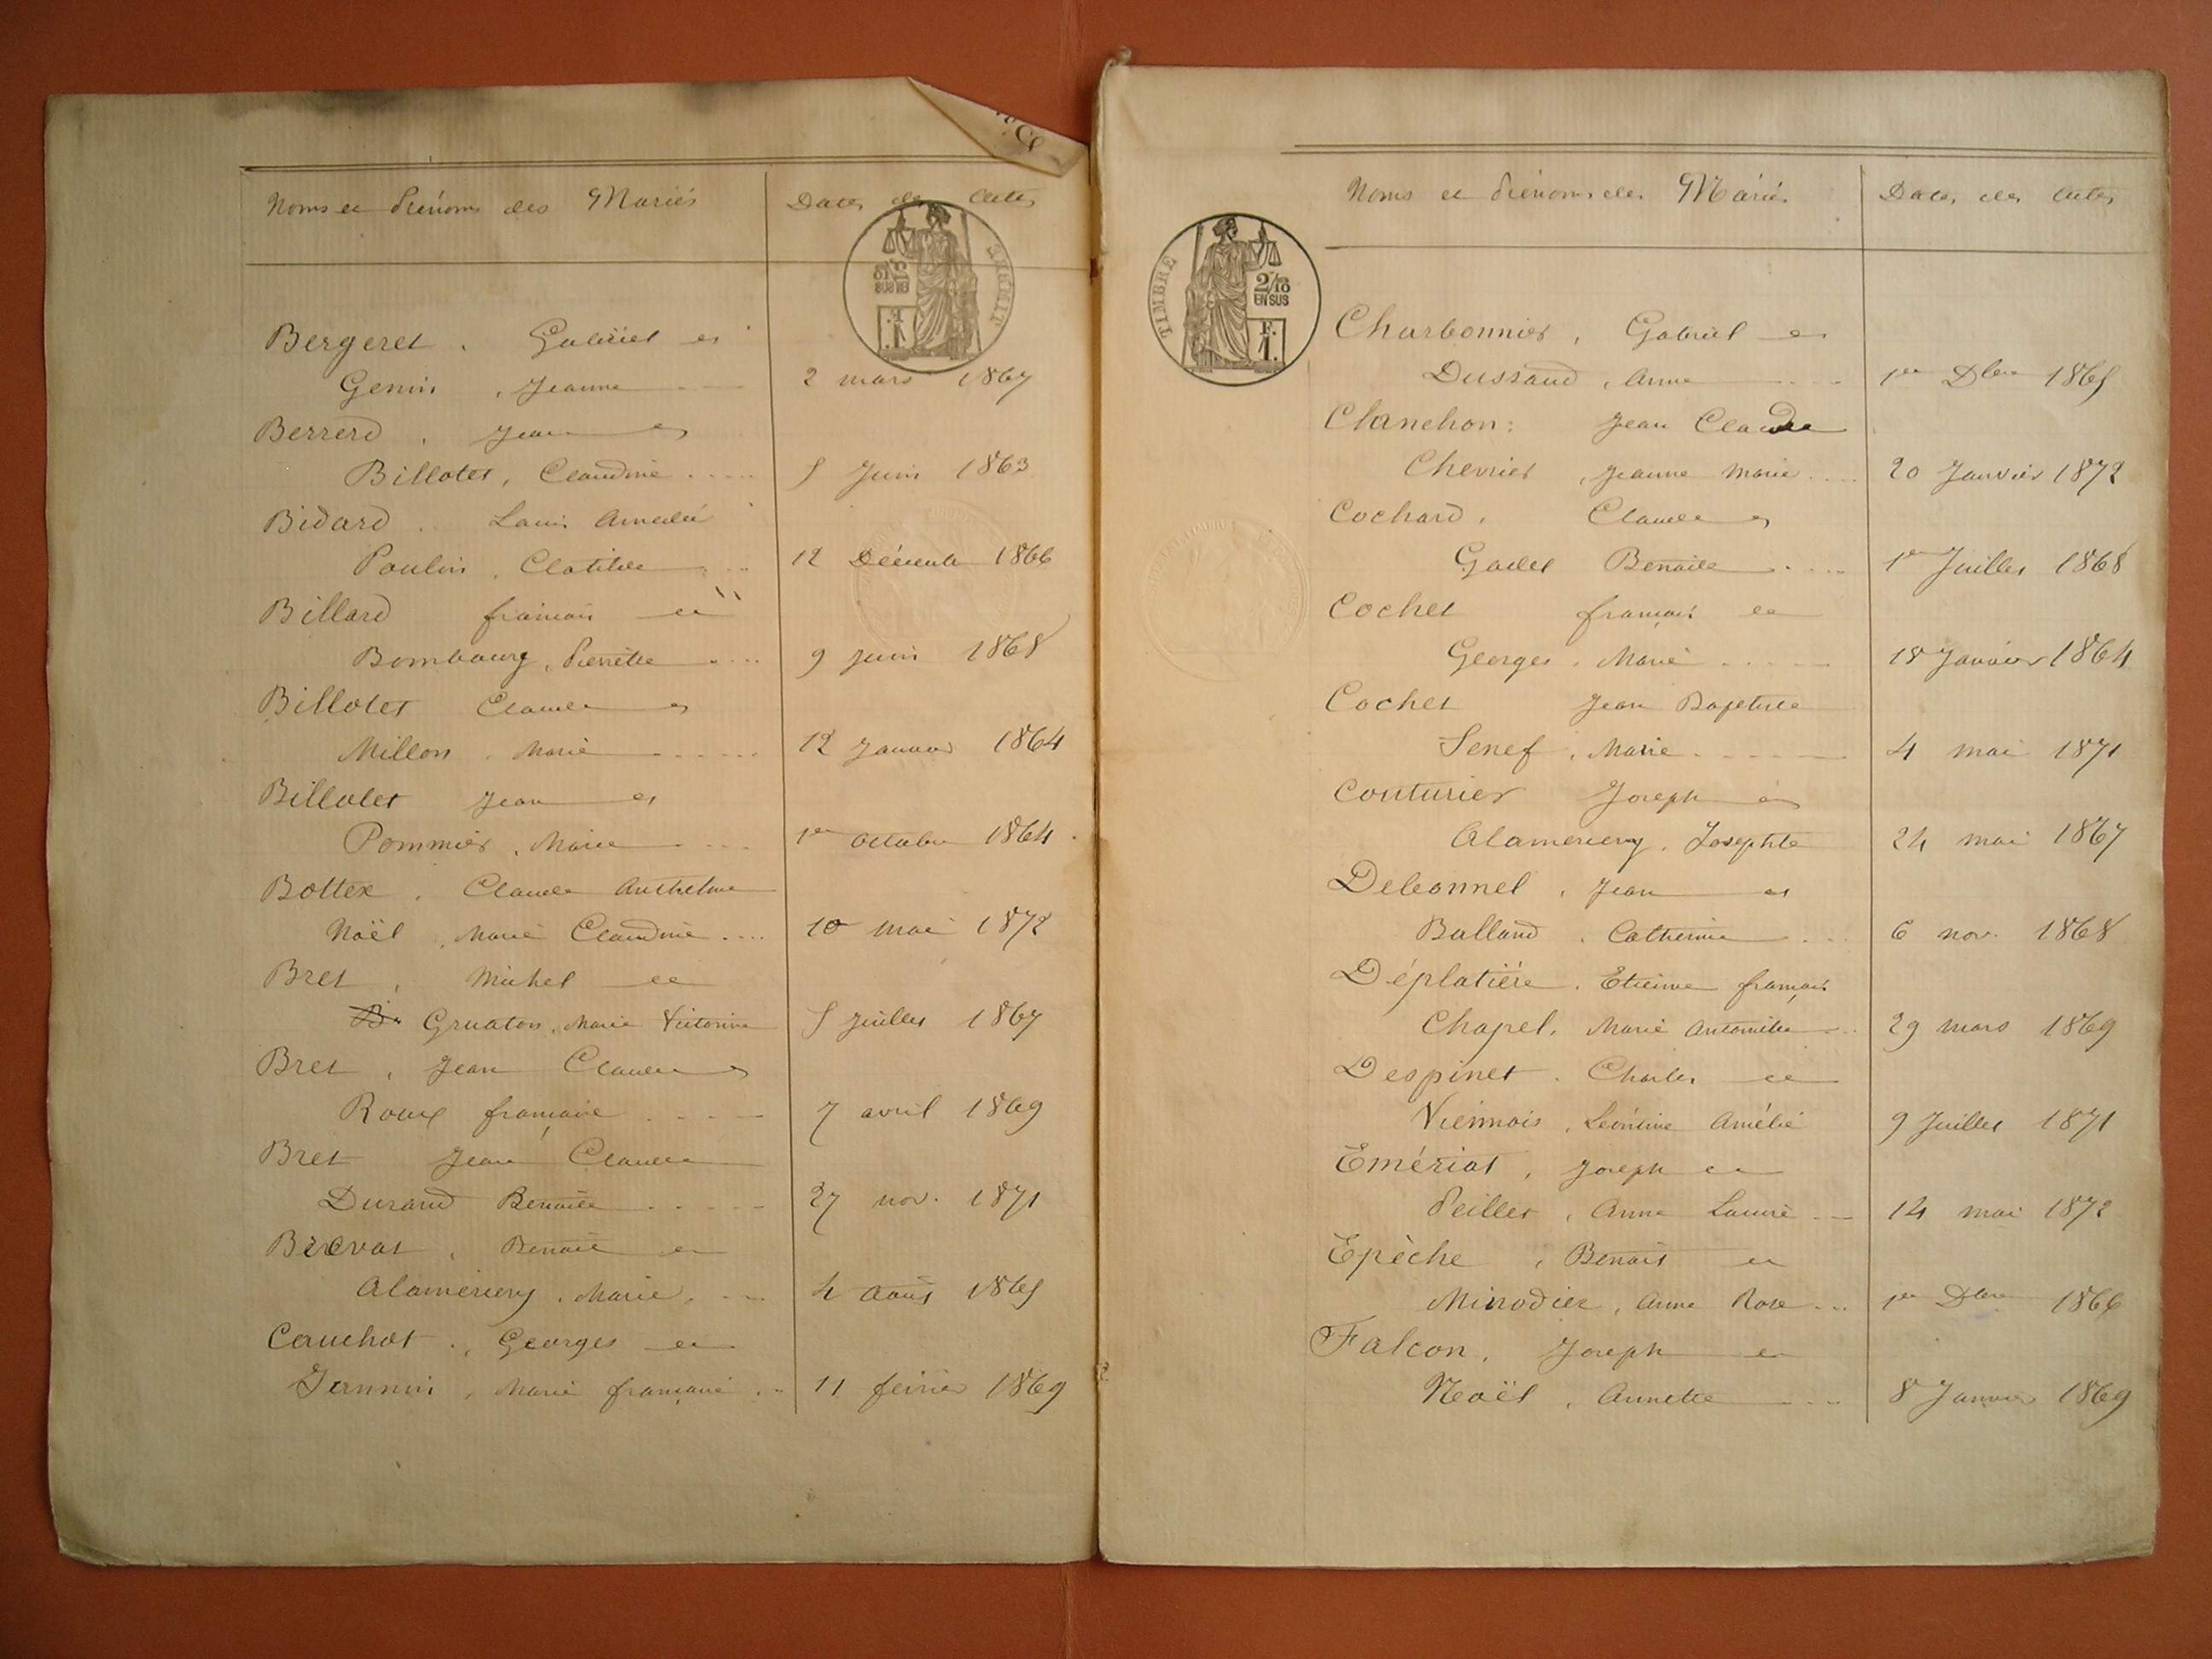 Noms et Prénoms des Mariés Dates des Actes
TIMBRE
2/10
EN SUS
1 F.
Bergeret, Gabriel et
Genin, Jeanne 2 mars 1867
Berrerd, Jean et
Billotet, Claudine 5 Juin 1863
Bidard Louis Amédée
Poulin, Clotilde 12 Décembre 1866
Billard françois et
Bombourg, Pierrette 9 juin 1868
Billotet Claude et
Millon, Marie 12 Janvier 1864
Billotet Jean et
Pommier, Marie 1er octobre 1864
Bottex, Claude Anthelme
Noël, Marie Claudine 10 mai 1872
Bret, Michel et
Gruaton, Marie Victorine 5 Juillet 1867
Bret, Jean Claude et
Roux françoise 7 avril 1869
Bret Jean Claude
Durand Benoite 27 nov. 1871
Brevat, Benoit et
Alamercery, Marie, 4 Août 1865
Cauchot, Georges et
Jeannin, Marie françoise 11 février 1869
Noms et Prénoms des Mariés Dates des Actes
TIMBRE
2/10
EN SUS
F.
1.
Charbonnier, Gabriel et
Dussaud, Anne 1er Dbre 1865
Clanchon: Jean Claude
Chevrier, Jeanne Marie 20 Janvier 1872
Cochard, Claude et
Gadet Benoite 1er Juillet 1868
Cochet françois et
Georges, Marie 18 Janvier 1864
Cochet Jean Baptiste
Senef, Marie 4 mai 1871
Couturier Joseph et
Alamercery, Josephte 24 mai 1867
Debonnel, Jean et
Balland, Catherine 6 nov. 1868
Déplatière, Etienne françois
Chapel, Marie Antoinette 29 mars 1869
Despinet. Charles et
Viennois, Léontine Amélie 9 Juillet 1871
Emériat, Joseph et
Peillet, Anne Laurie 14 mai 1872
Epèche, Benoit et
Minodier, Anne Rose 1er Dbre 1866
Falcon, Joseph et
Noël, Annette 8 Janvier 1869